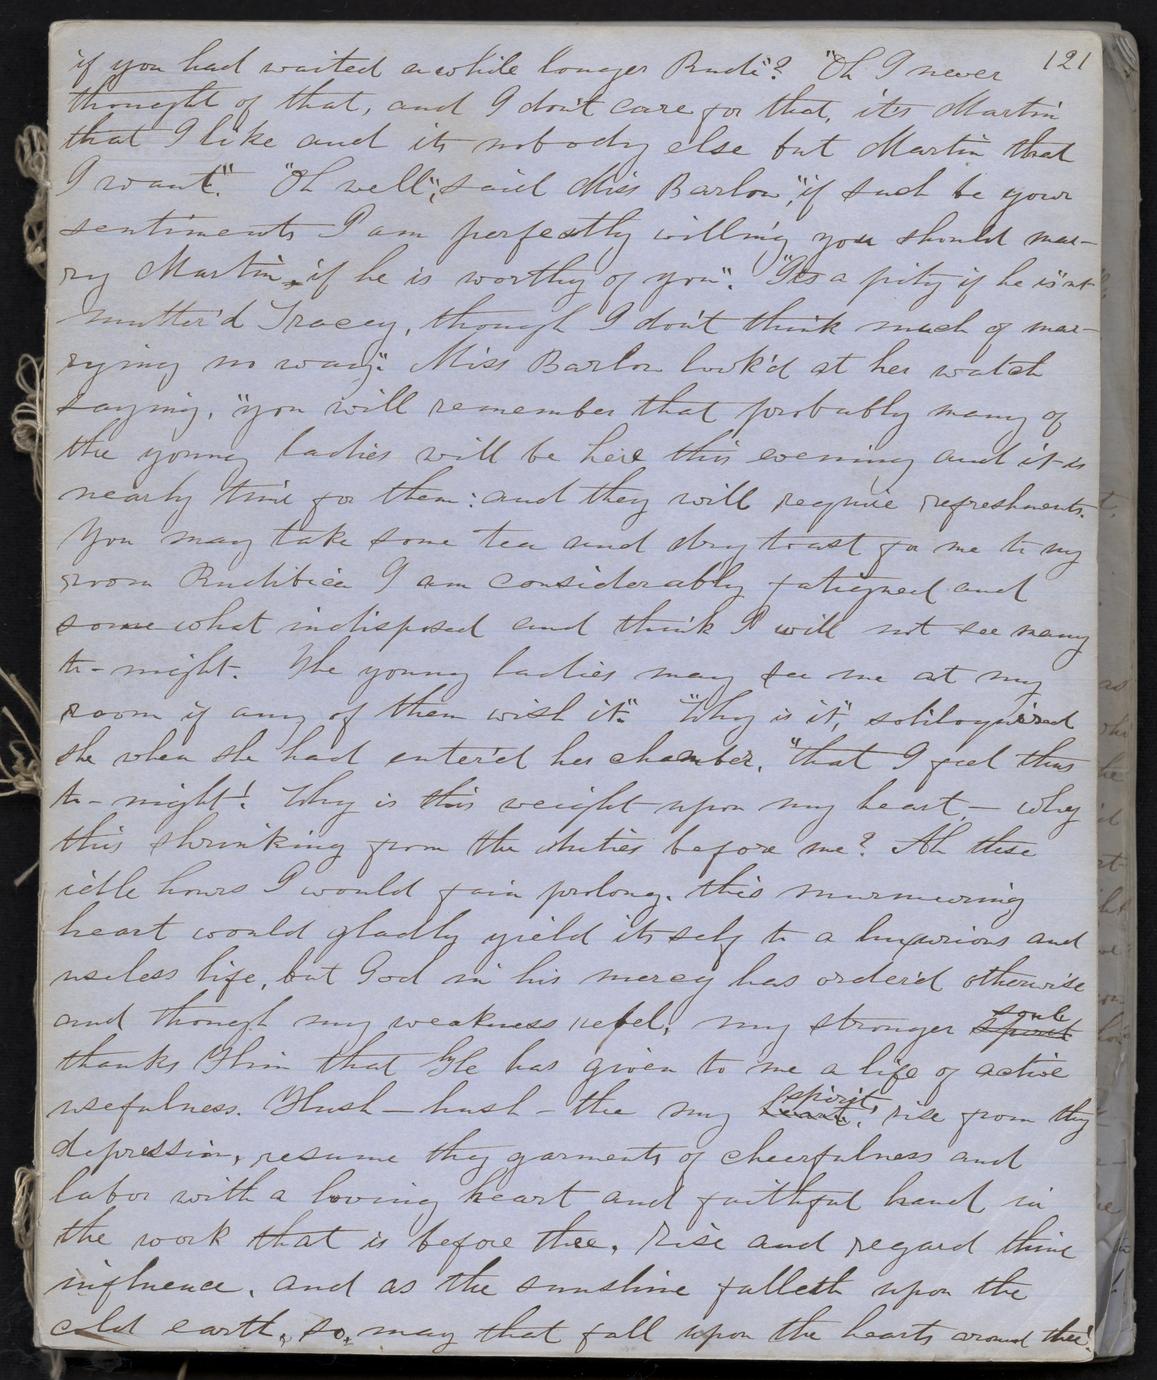 121
if you had waited awhile longer Rudi"? "Oh I never
thought of that, and I don't care for that, its Martin
that I like and its nobody else but Martin that
I want". "Oh well", said Miss Barlow, "if such be your
sentiments I am perfectly willing you should mar-
ry Martin, if he is worthy of you". "Its a pity if he is'nt
mutter'd Tracey, though I don't think much of mar-
rying no way". Miss Barlow look'd at her watch
saying, "you will remember that probably many of
the young ladies will be here this evening and it is
nearly time for them: and they will require refreshments.
You may take some tea and dry toast for me to my
room Rudibica I am considerably fatigued and
somewhat indisposed and think I will not see many
to-night. The young ladies may see me at my
room if any of them wish it". "Why is it", soliloquized
she when she had enter'd her chamber, "that I feel thus
to-night! Why is this weight upon my heart — why
this shrinking from the duties before me? Ah these
idle hours I would fain prolong, this murmuring
heart would gladly yield its self to a luxurious and
useless life, but God in his mercy has order'd otherwise
and though my weakness rebel, my stronger spirit soul
thanks Him that He has given to me a life of active
usefulness. Hush — hush — the my heart, spirit, rise from thy
depression, resume thy garments of cheerfulness and
labor with a loving heart and faithful hand in
the work that is before thee. Rise and regard thine
influence, and as the sunshine falleth upon the
cold earth, so, may that fall upon the hearts around thee!